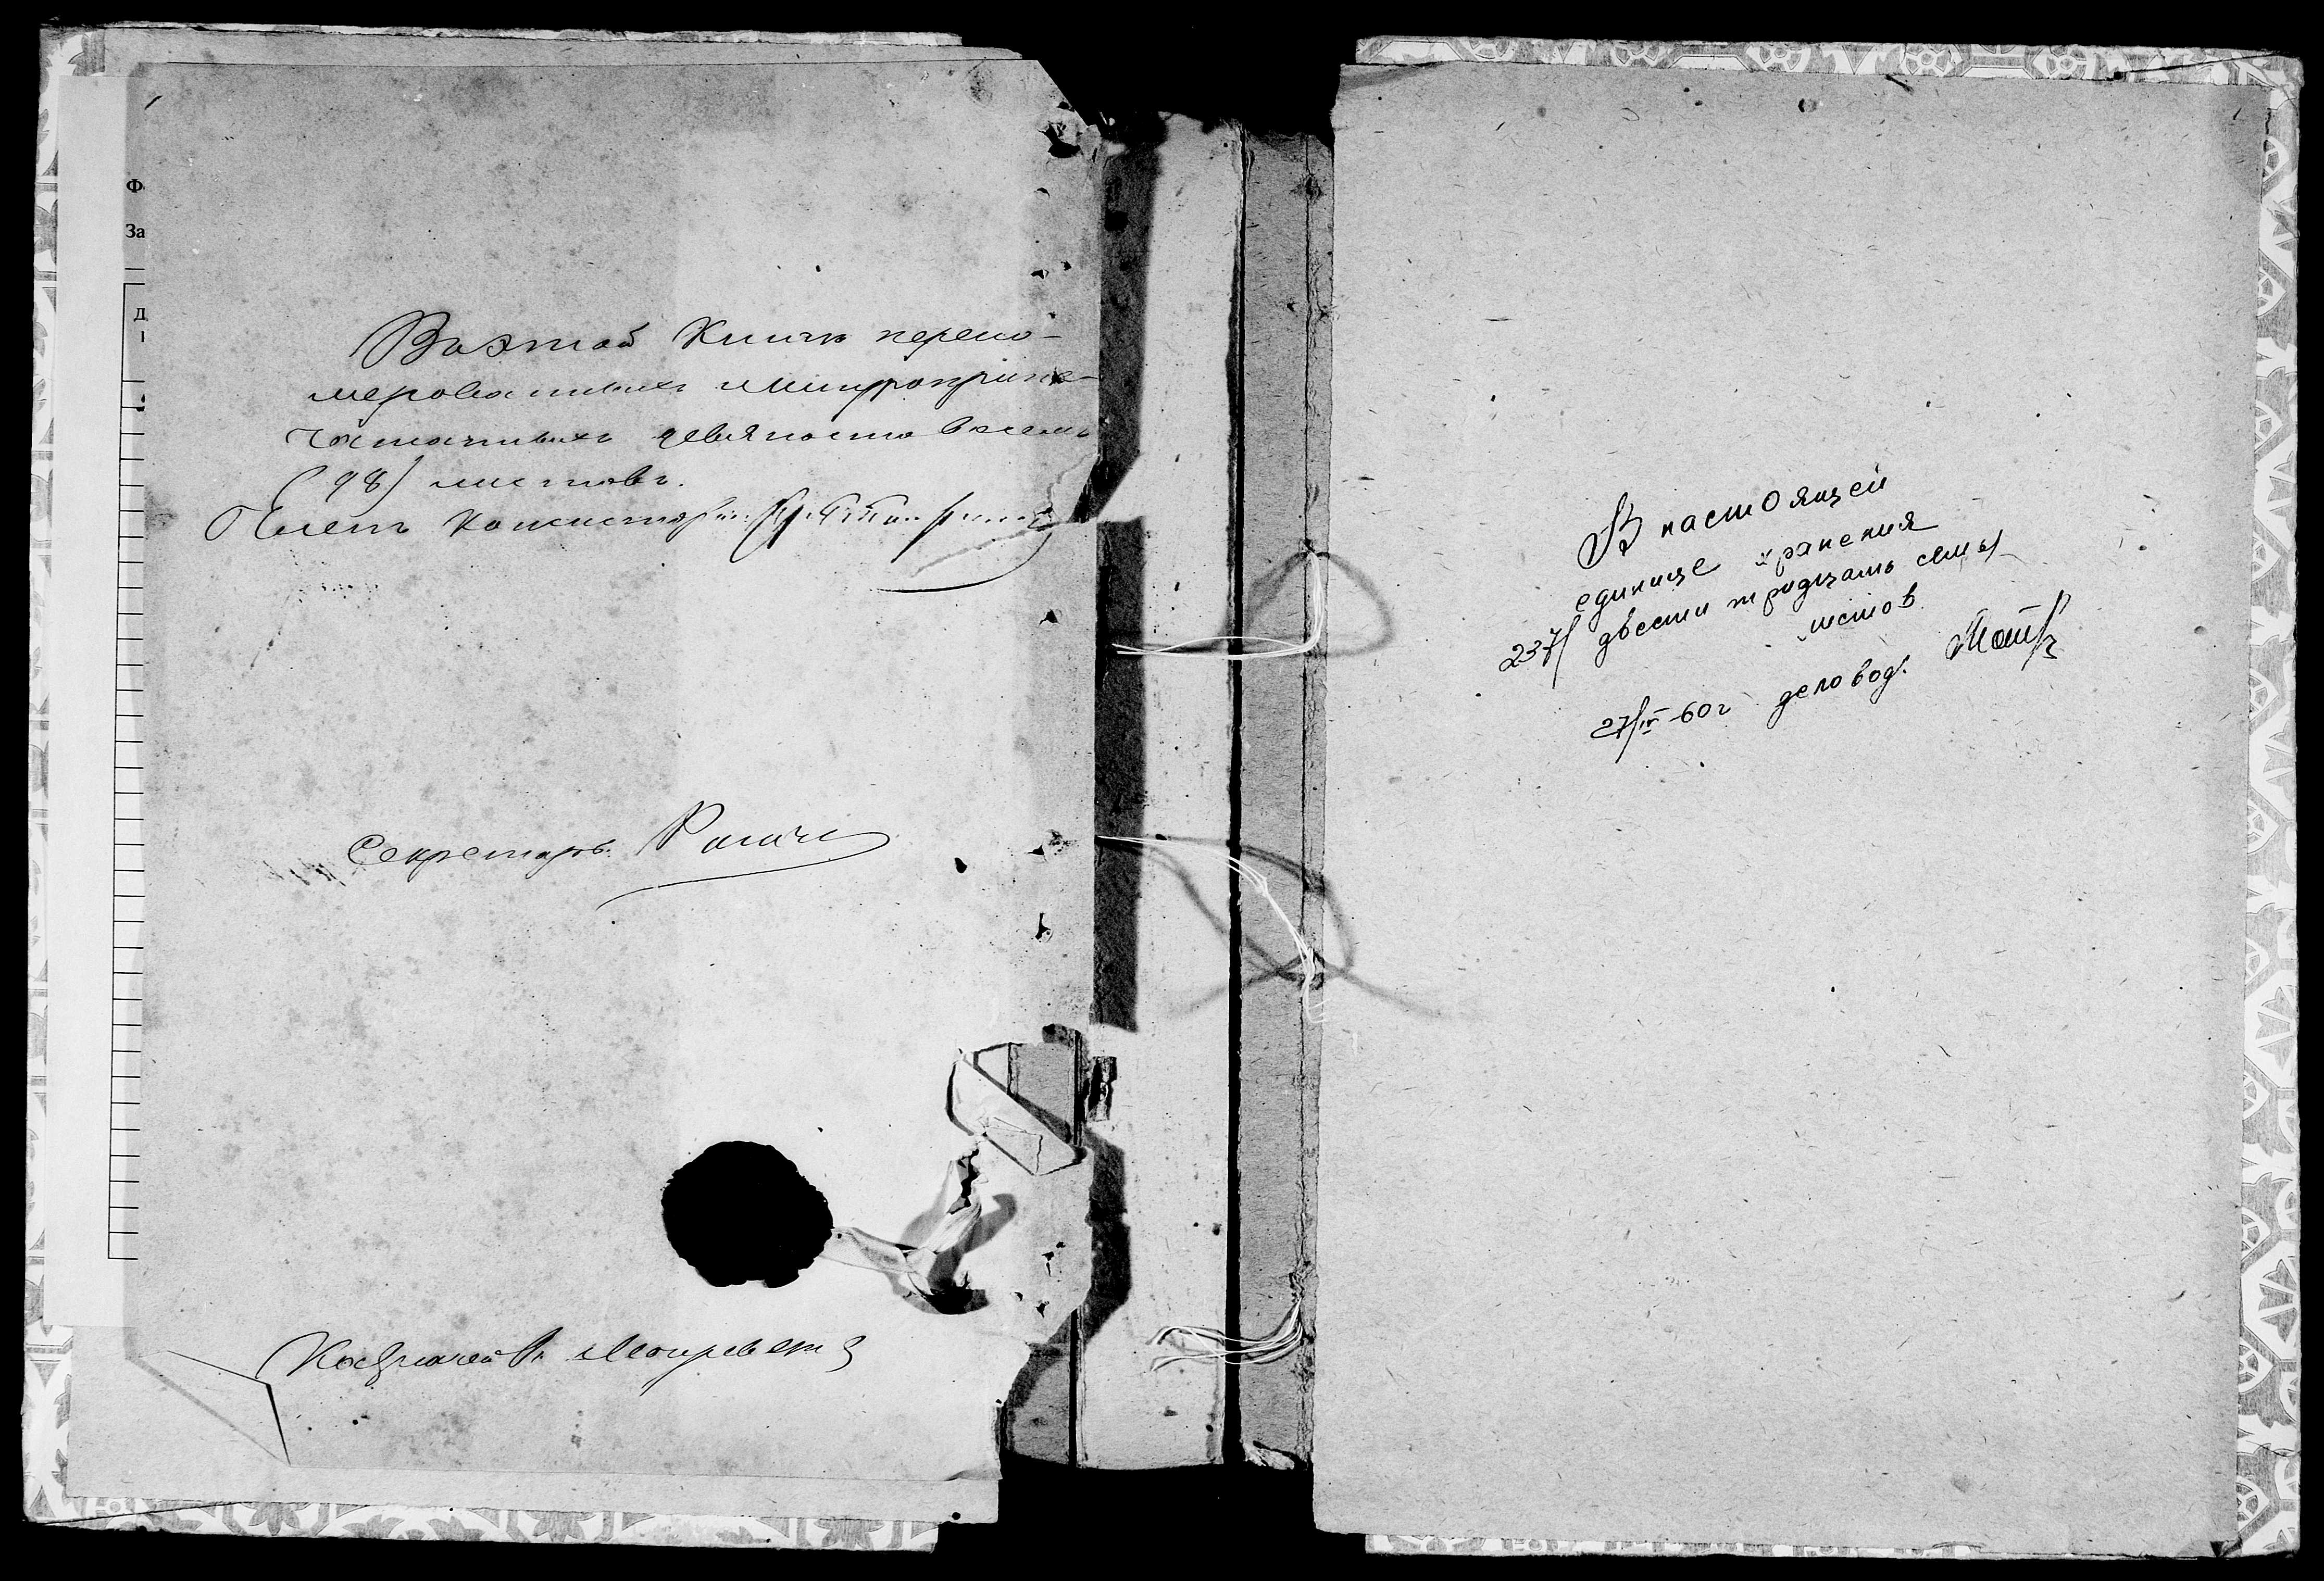 Ф
За
Д
Въ этой Книгѣ перено-
мерованныхъ и шнуроприпе-
чатанныхъ девяносто восемь
(98) листовъ.
Членъ Консисторіи
Секретарь
Казначей
В настоящей
единице хранения
237/ двести тридцать семь/
листов
27/IV-60г деловод.